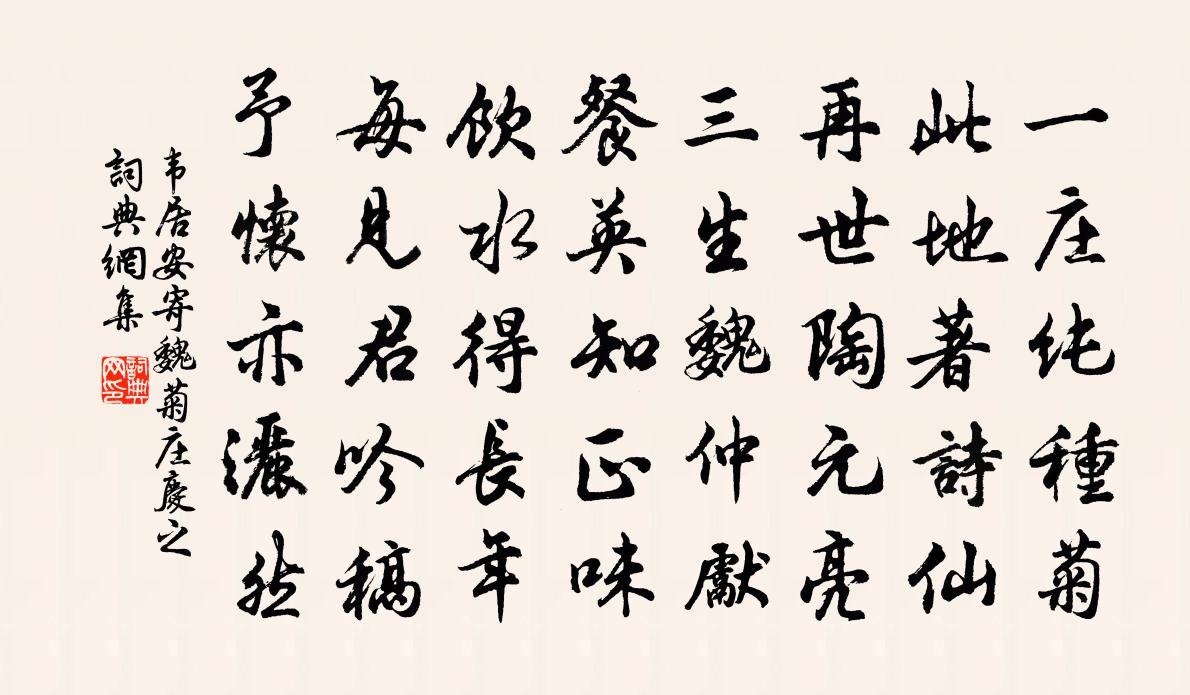 一庄纯種菊
此地著詩仙
再世陶元亮
三生魏仲獻
餐英知正味
飲水得長年
每見君吟稿
予懷亦灑然
韦居安寄魏菊庄慶之
詞典網集
詞典网印